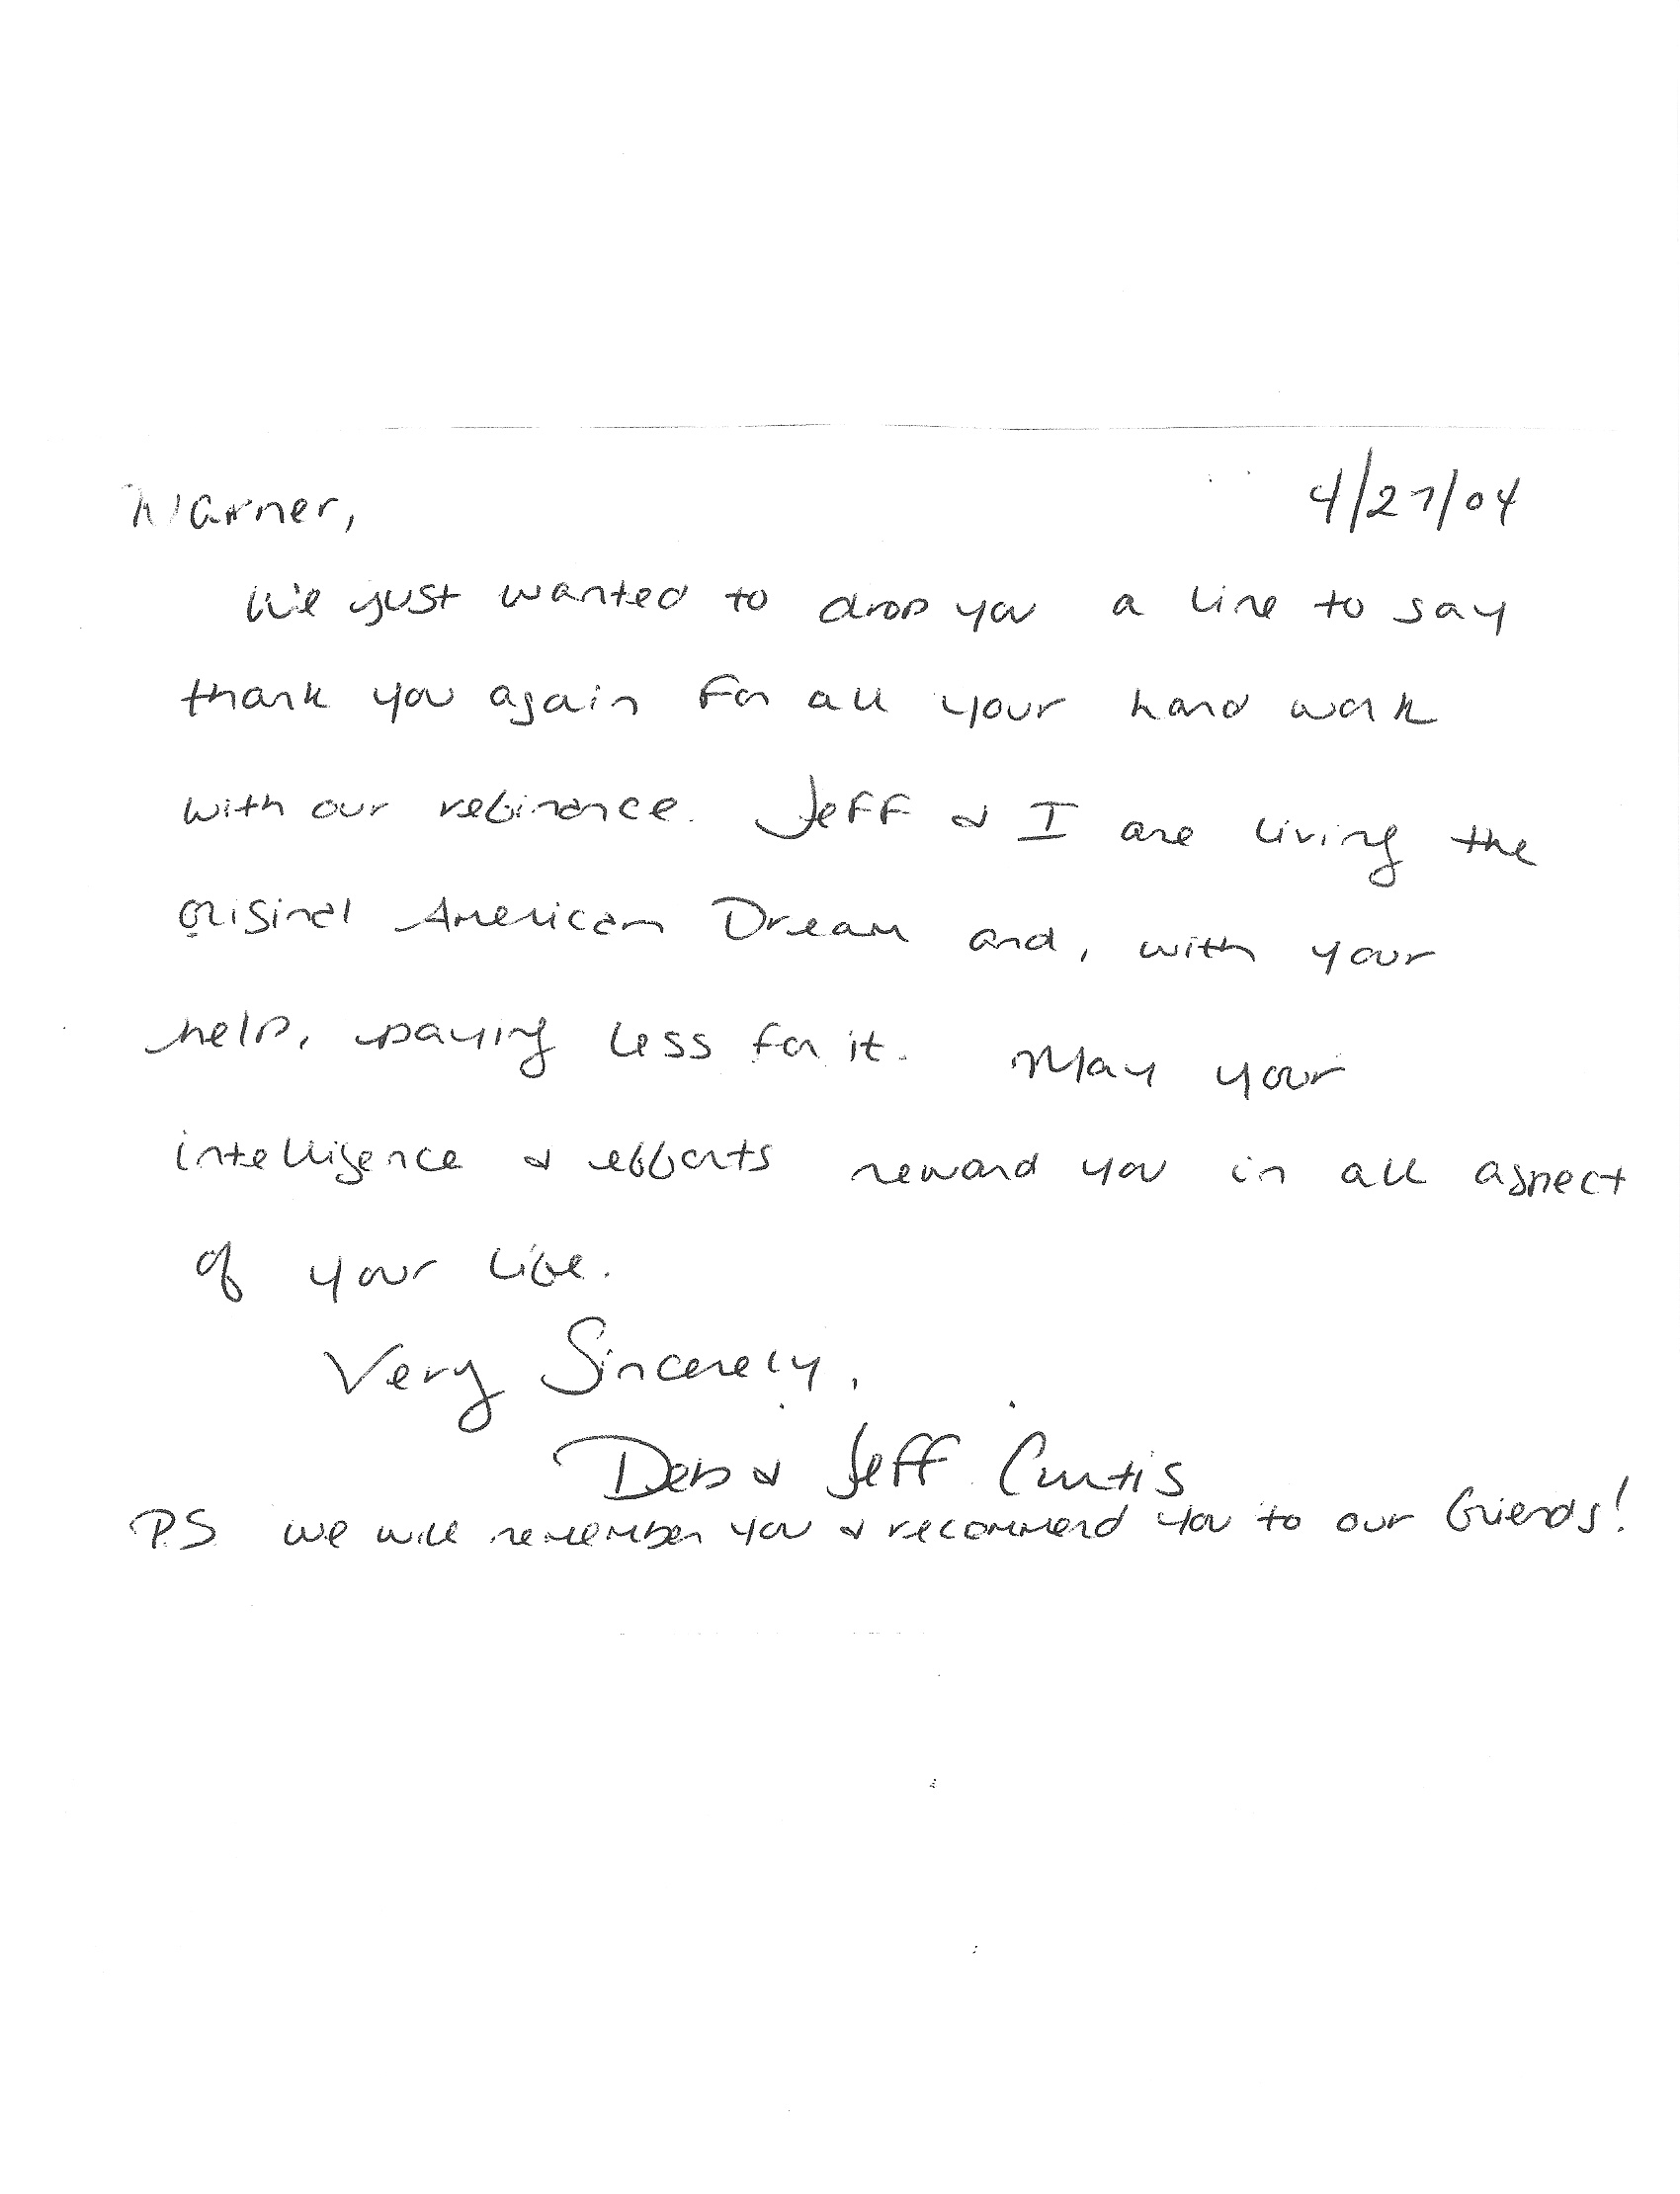 Warner,
4/27/04
We just wanted to drop you a line to say
thank you again for all your hard work
with our refinance. Jeff & I are living the
original American Dream and, with your
help, paying less for it. May your
intelligence & efforts reward you in all aspect
of your life.
Very Sincerely,
Deb & Jeff Curtis
PS we will remember you & recommend you to our friends!